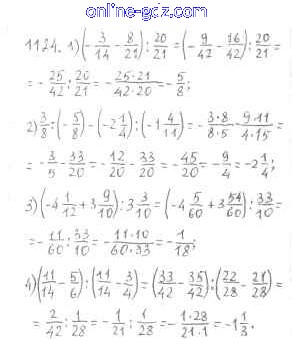 online-gdz.com
1124. 1) (-3/14 - 8/21) : 20/21 = (-9/42 - 16/42) : 20/21 =
= -25/42 : 20/21 = -25·21/42·20 = -5/8;
2) 3/8 : (-5/8) - (-2 1/4) : (-1 4/11) = -3·8/8·5 - 9·11/4·15 =
= -3/5 - 33/20 = -12/20 - 33/20 = -45/20 = -9/4 = -2 1/4;
3) (-4 1/12 + 3 9/10) : 3 3/10 = (-4 5/60 + 3 54/60) : 33/10 =
= -11/60 : 33/10 = -11·10/60·33 = -1/18;
4) (11/14 - 5/6) : (11/14 - 3/4) = (33/42 - 35/42) : (22/28 - 21/28) =
= 2/42 : 1/28 = -1/21 : 1/28 = -1·28/21·1 = -1 1/3.